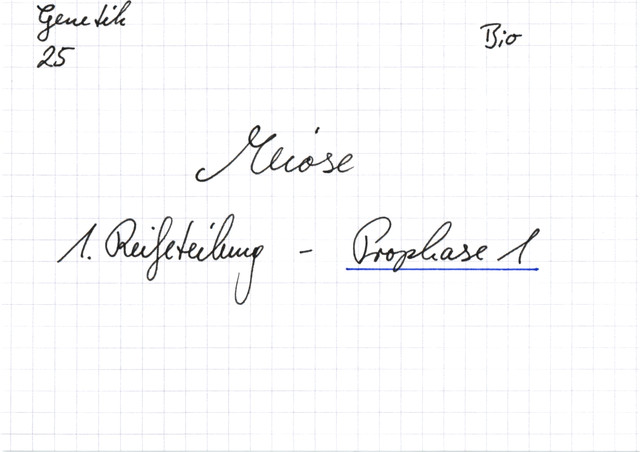 Genetik
Bio
25
Meiose
1. Reifeteilung - Prophase 1